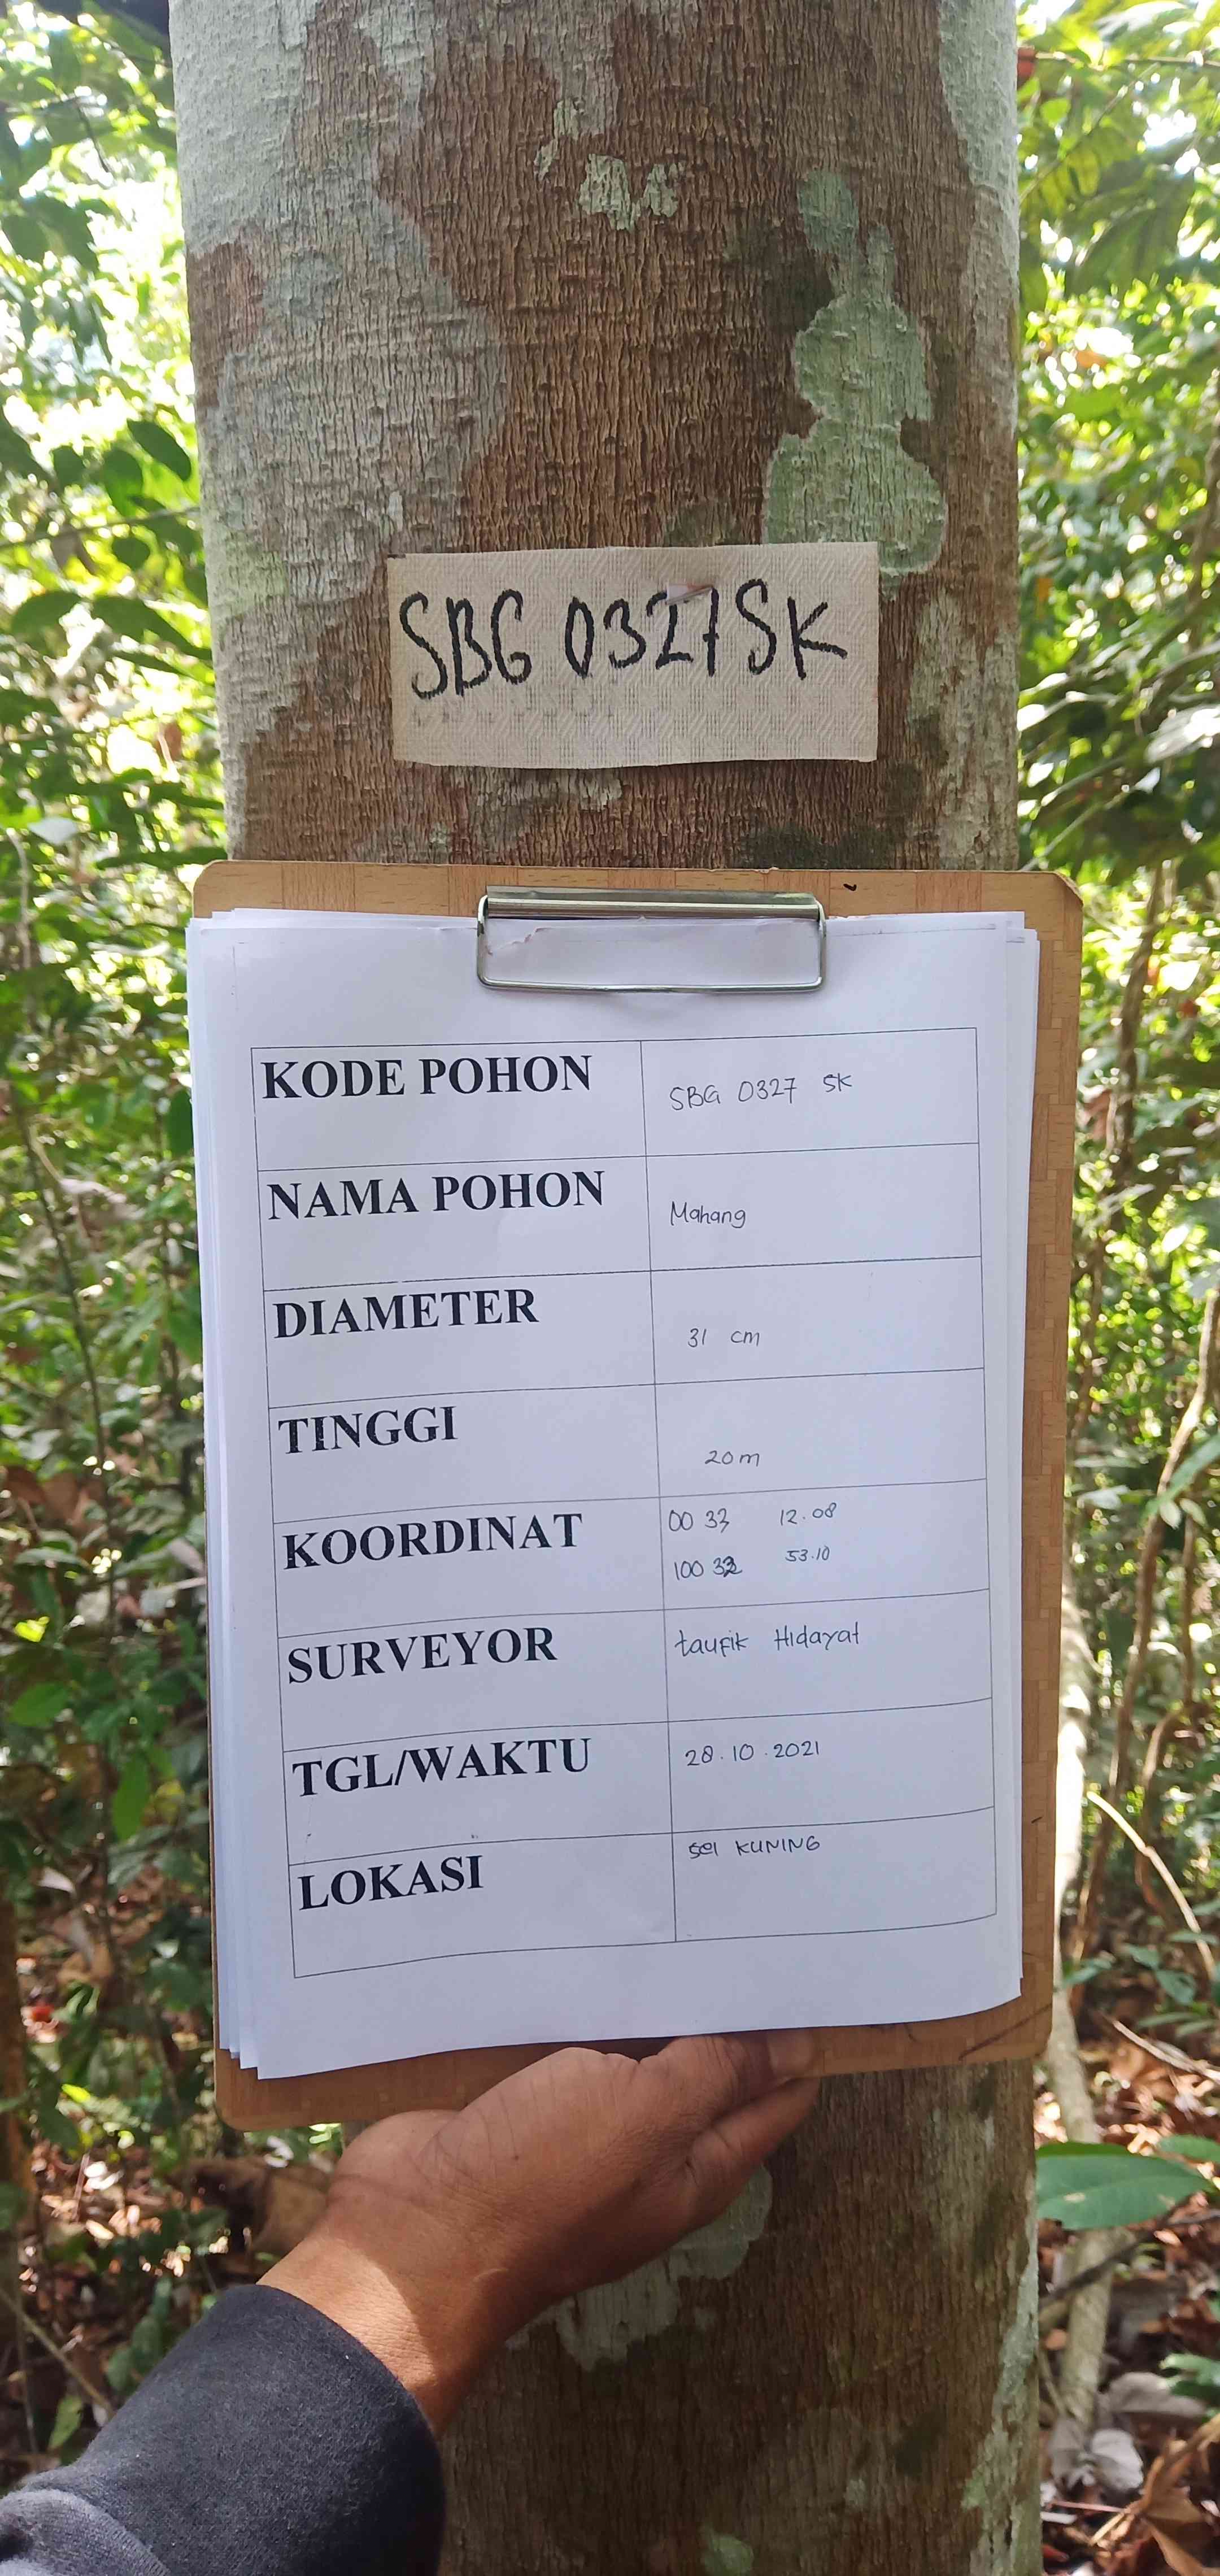 SBG 0327 SK
KODE POHON SBG 0327 SK
NAMA POHON Mahang
DIAMETER 31 cm
TINGGI 20 m
KOORDINAT 00 33 12.08
100 32 53.10
SURVEYOR taufik Hidayat
TGL/WAKTU 28.10.2021
LOKASI sei KUNING